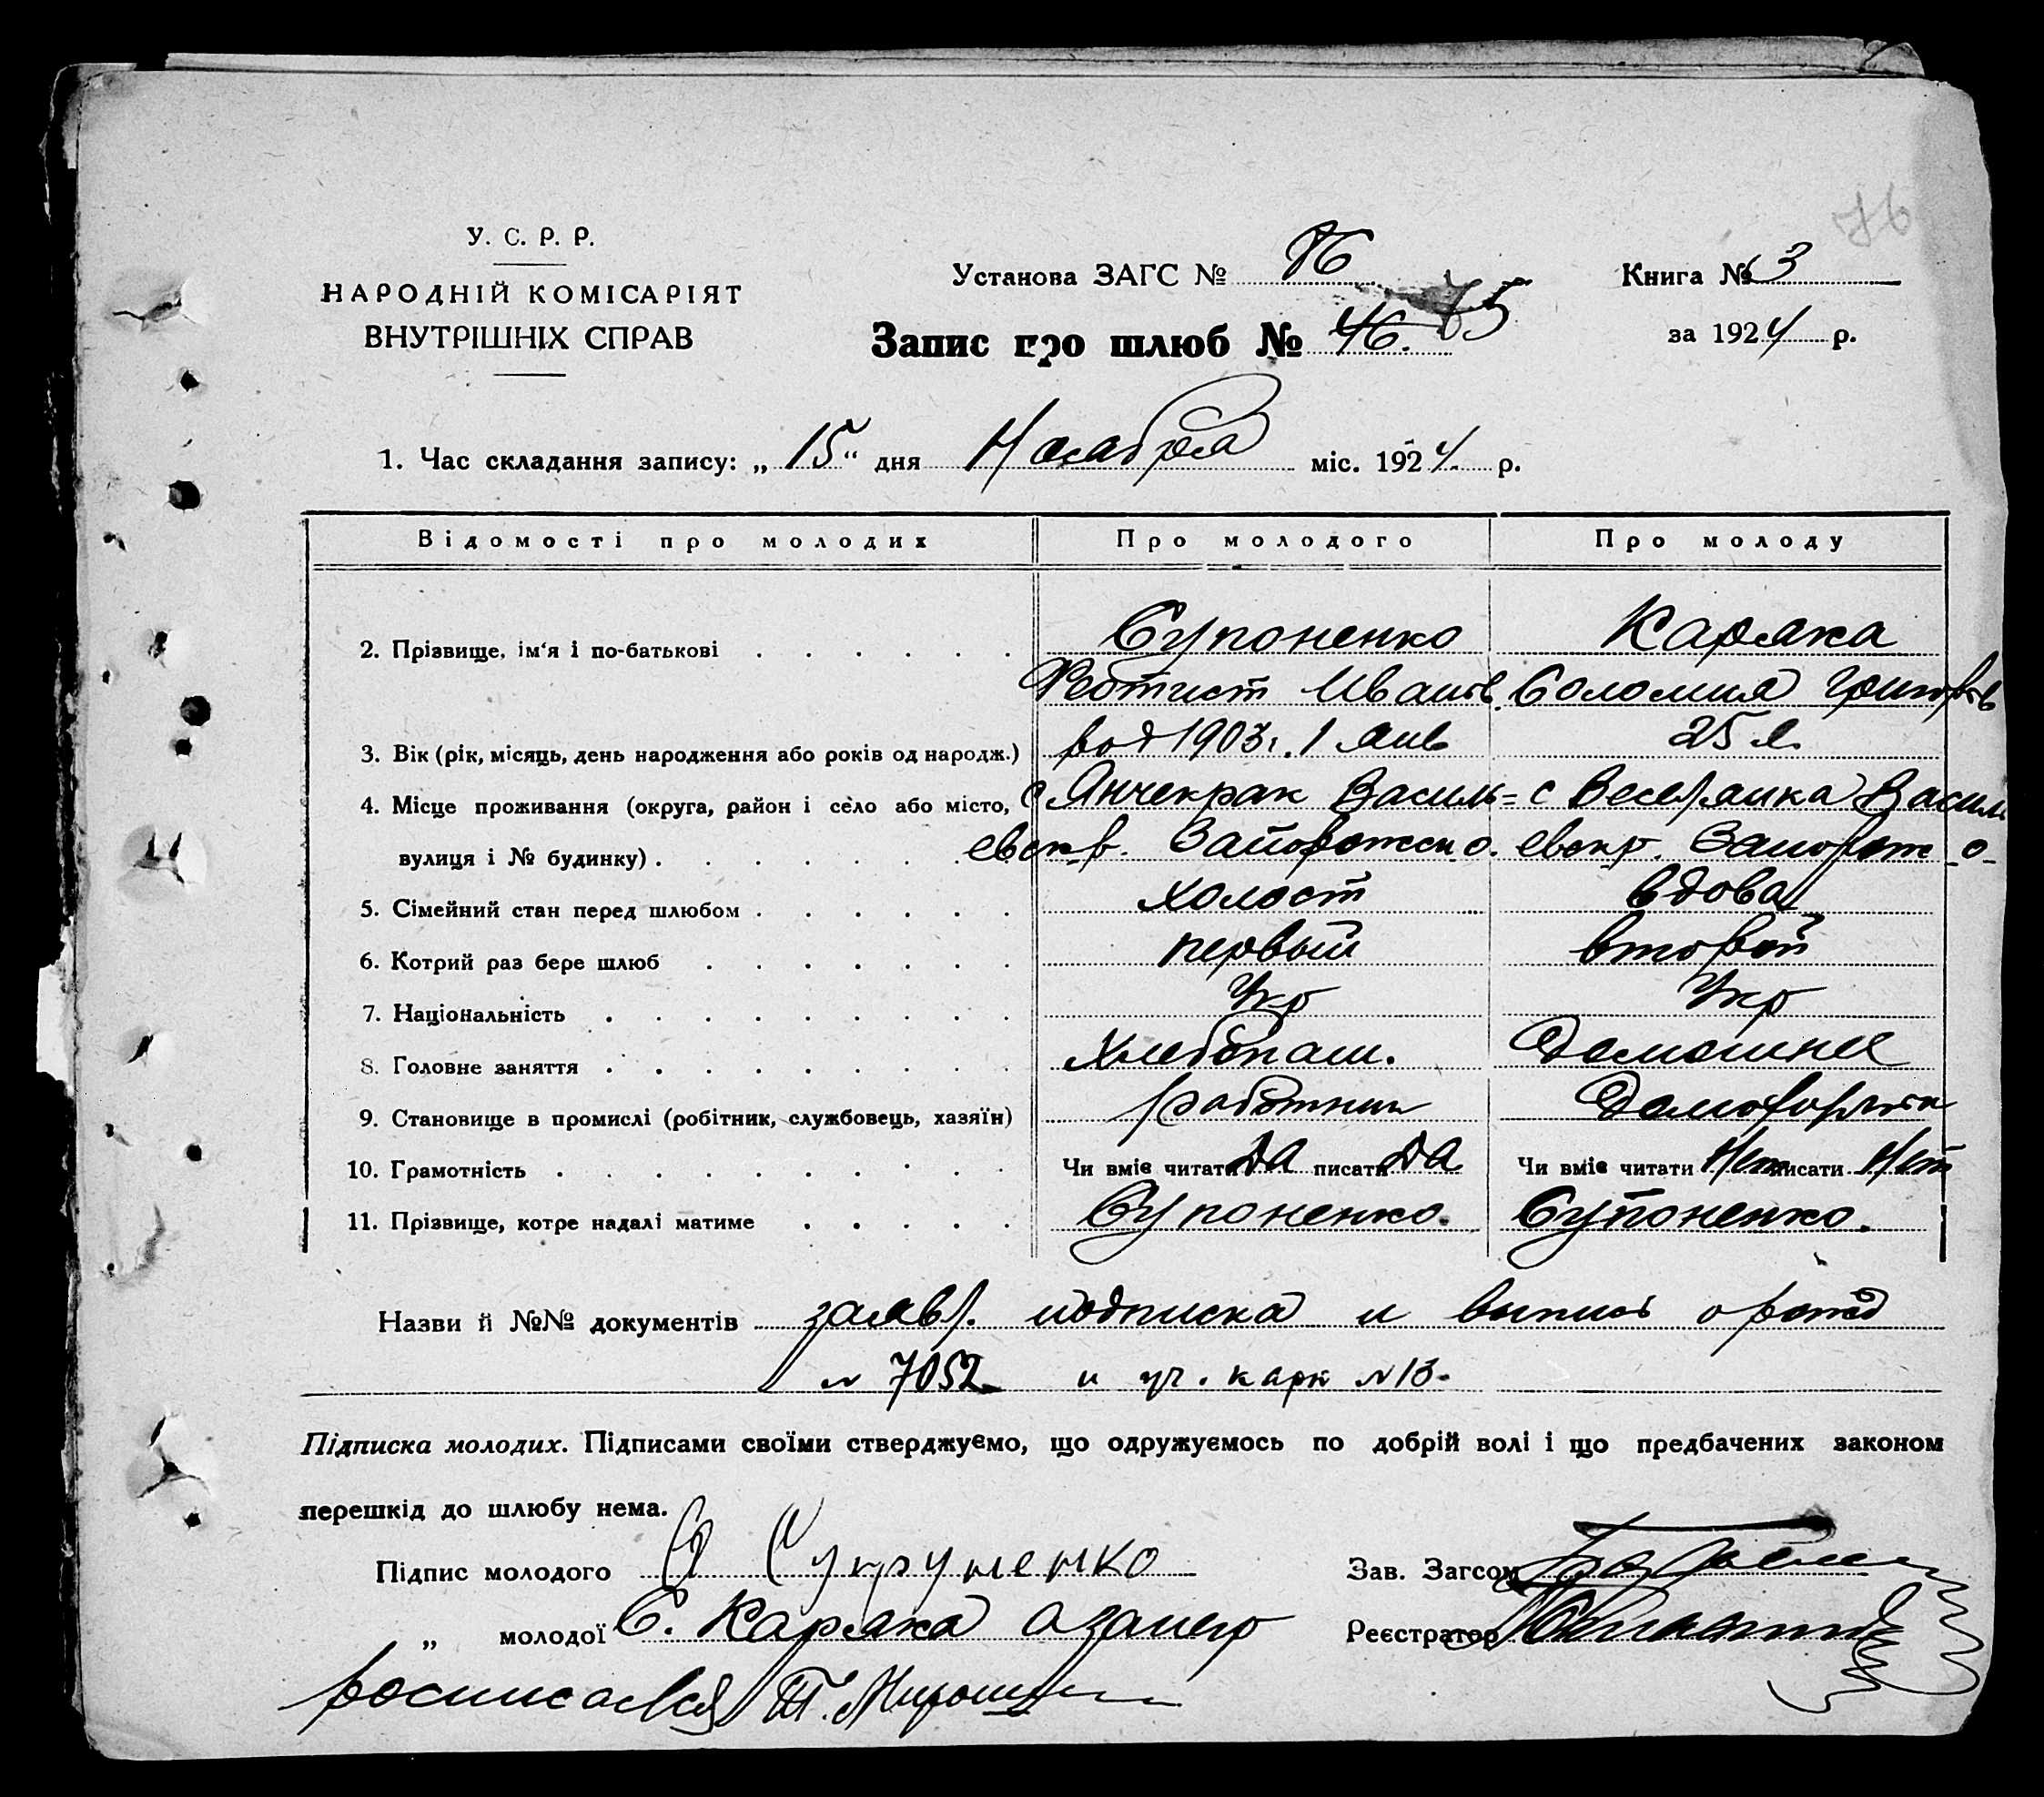 76
У. С. Р. Р.
НАРОДНІЙ КОМІСАРІЯТ
ВНУТРІШНІХ СПРАВ
Установа ЗАГС № 76
Книга № 3
Запис про шлюб № 46. 75
за 1924 р.
1. Час складання запису: „15“ дня Ноября міс. 1924. р.
Відомості про молодих Про молодого Про молоду
2. Прізвище, ім'я і по-батькові Супоненко Каряка
Феотист Иванов. Соломия Григорьев
3. Вік (рік, місяць, день народження або років од народж.) род 1903 г. 1 янв 25 л.
4. Місце проживання (округа, район і село або місто, с Янчекрак Василь= с Веселянка Василь
вулиця і № будинку) евск р. Запорожск о. евск р. Запорож о
5. Сімейний стан перед шлюбом холост вдова
6. Котрий раз бере шлюб первый второй
7. Національність Укр Укр
8. Головне заняття Хлебопаш. Домашнее
9. Становище в промислі (робітник, службовець, хазяїн) работник
10. Грамотність Чи вміє читати да писати да Чи вміє читати Нет писати Нет
11. Прізвище, котре надалі матиме Супоненко. Супоненко.
Назви й №№ документів заявл. подписка и выпись о рожд
№ 7052 и уч. карт №13.
Підписка молодих. Підписами своїми стверджуємо, що одружуємось по добрій волі і що предбачених законом
перешкід до шлюбу нема.
Підпис молодого Супруненко Зав. Загсом
„ молодої С. Каряка а за нею Реєстратор
росписался Т. Мирошн